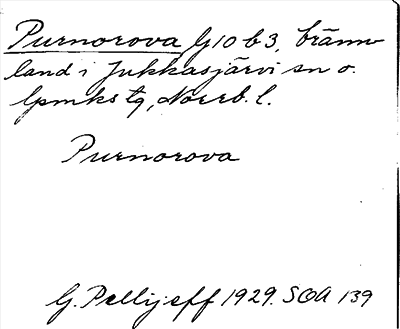 Purnorova G10 b 3, brännv
land i Jukkasjärvi sn o.
lpmks tg, Norrb. l.
Purnorova
G. Pellijeff 1929. SOA 139